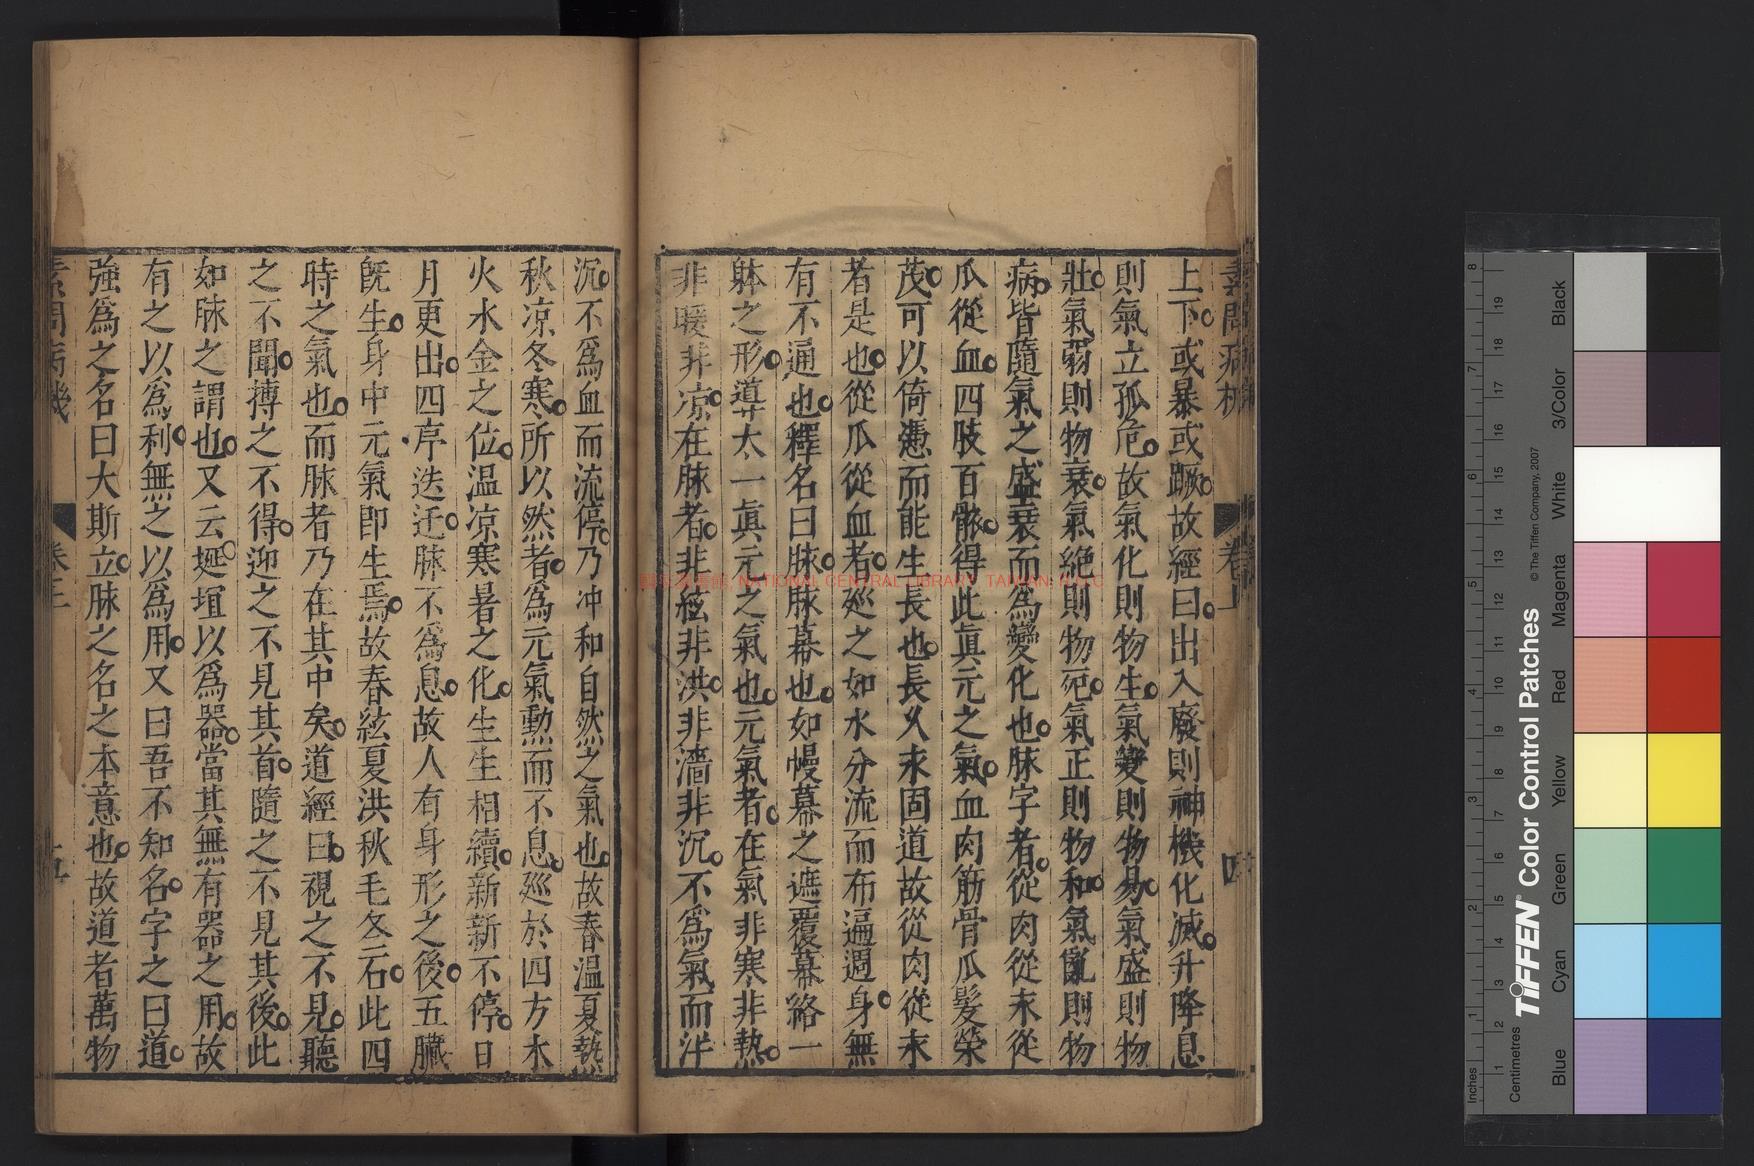 上下或暴或蹶故經曰出入廢則神機化滅升降息
則氣立孤危故氣化則物生氣變則物易氣盛則物
壯氣弱則物衰氣絶則物死氣正則物和氣亂則物
病皆隨氣之盛衰而爲變化也脉字者從肉從末從
瓜從血四肢百骸得此眞元之氣血肉筋骨瓜髮榮
茂可以倚憑而能生長也長久末固道故從肉從末
者是也從瓜從血者巡之如水分流而布遍週身無
有不通也釋名曰脉脉幕也如幔幕之遮覆幕絡一
躰之形道廾太一眞元之氣也元氣者在氣非寒非熱
非暖非凉在脉者非絃非洪非濇非沉不爲氣而洋
沉不爲血而流停乃冲和自然之氣也故春温夏熱
秋凉冬寒所以然者爲元氣勲而不息巡於四方木
火水金之位温凉寒暑之化生生相續新新不停日
月更出四序迭迁脉不爲息故人有身形之後五臓
旣生身中元氣即生焉故春絃夏洪秋毛冬石此四
時之氣也而脉者乃在其中矣道經曰視之不見聽
之不聞摶之不得迎之不見其首隨之不見其後此
如脉之謂也又云埏埴以爲器當其無有器之用故
有之以爲利無之以爲用又曰吾不知名字之曰道
強爲之名曰大斯立脉之名之本意也故道者萬物
素問病機
卷上
五
四
NATIONAL CENTRAL LIBRARY, TAIWAN, R.O.C
Inches
Centimetres
TIFFEN® Color Control Patches
© The Tiffen Company, 2007
Blue
Cyan
Green
Yellow
Red
Magenta
White
3/Color
Black